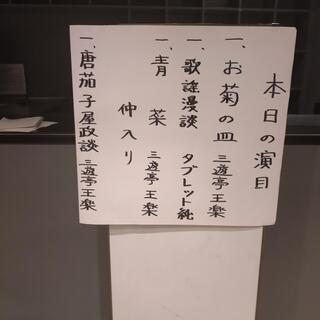 本日の演目
一、お菊の皿 三遊亭王楽
一、歌謡漫談 タブレット純
一、青菜 三遊亭王楽
仲入り
一、唐茄子屋政談 三遊亭王楽